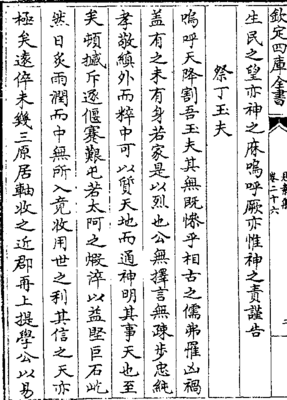 欽定四庫全書
卷二十六
生民之望亦神之庥嗚呼厥亦惟神之責謹告
祭丁玉夫
嗚呼天降割吾玉夫其無既慘乎相古之儒弗罹凶禍
蓋有之未有身若家是以烈也公無擇言無疎步忠純
孝敬縝外而粹中可以質天地而通神明其事天也至
矣頓撼斥逐偃蹇艱屯若太阿之煅淬以益堅巨石屹
然日炙雨潤而中無所入竟收用世之利其信之天亦
極矣遠倅未幾三原居軸收之近郡再上提學公以易